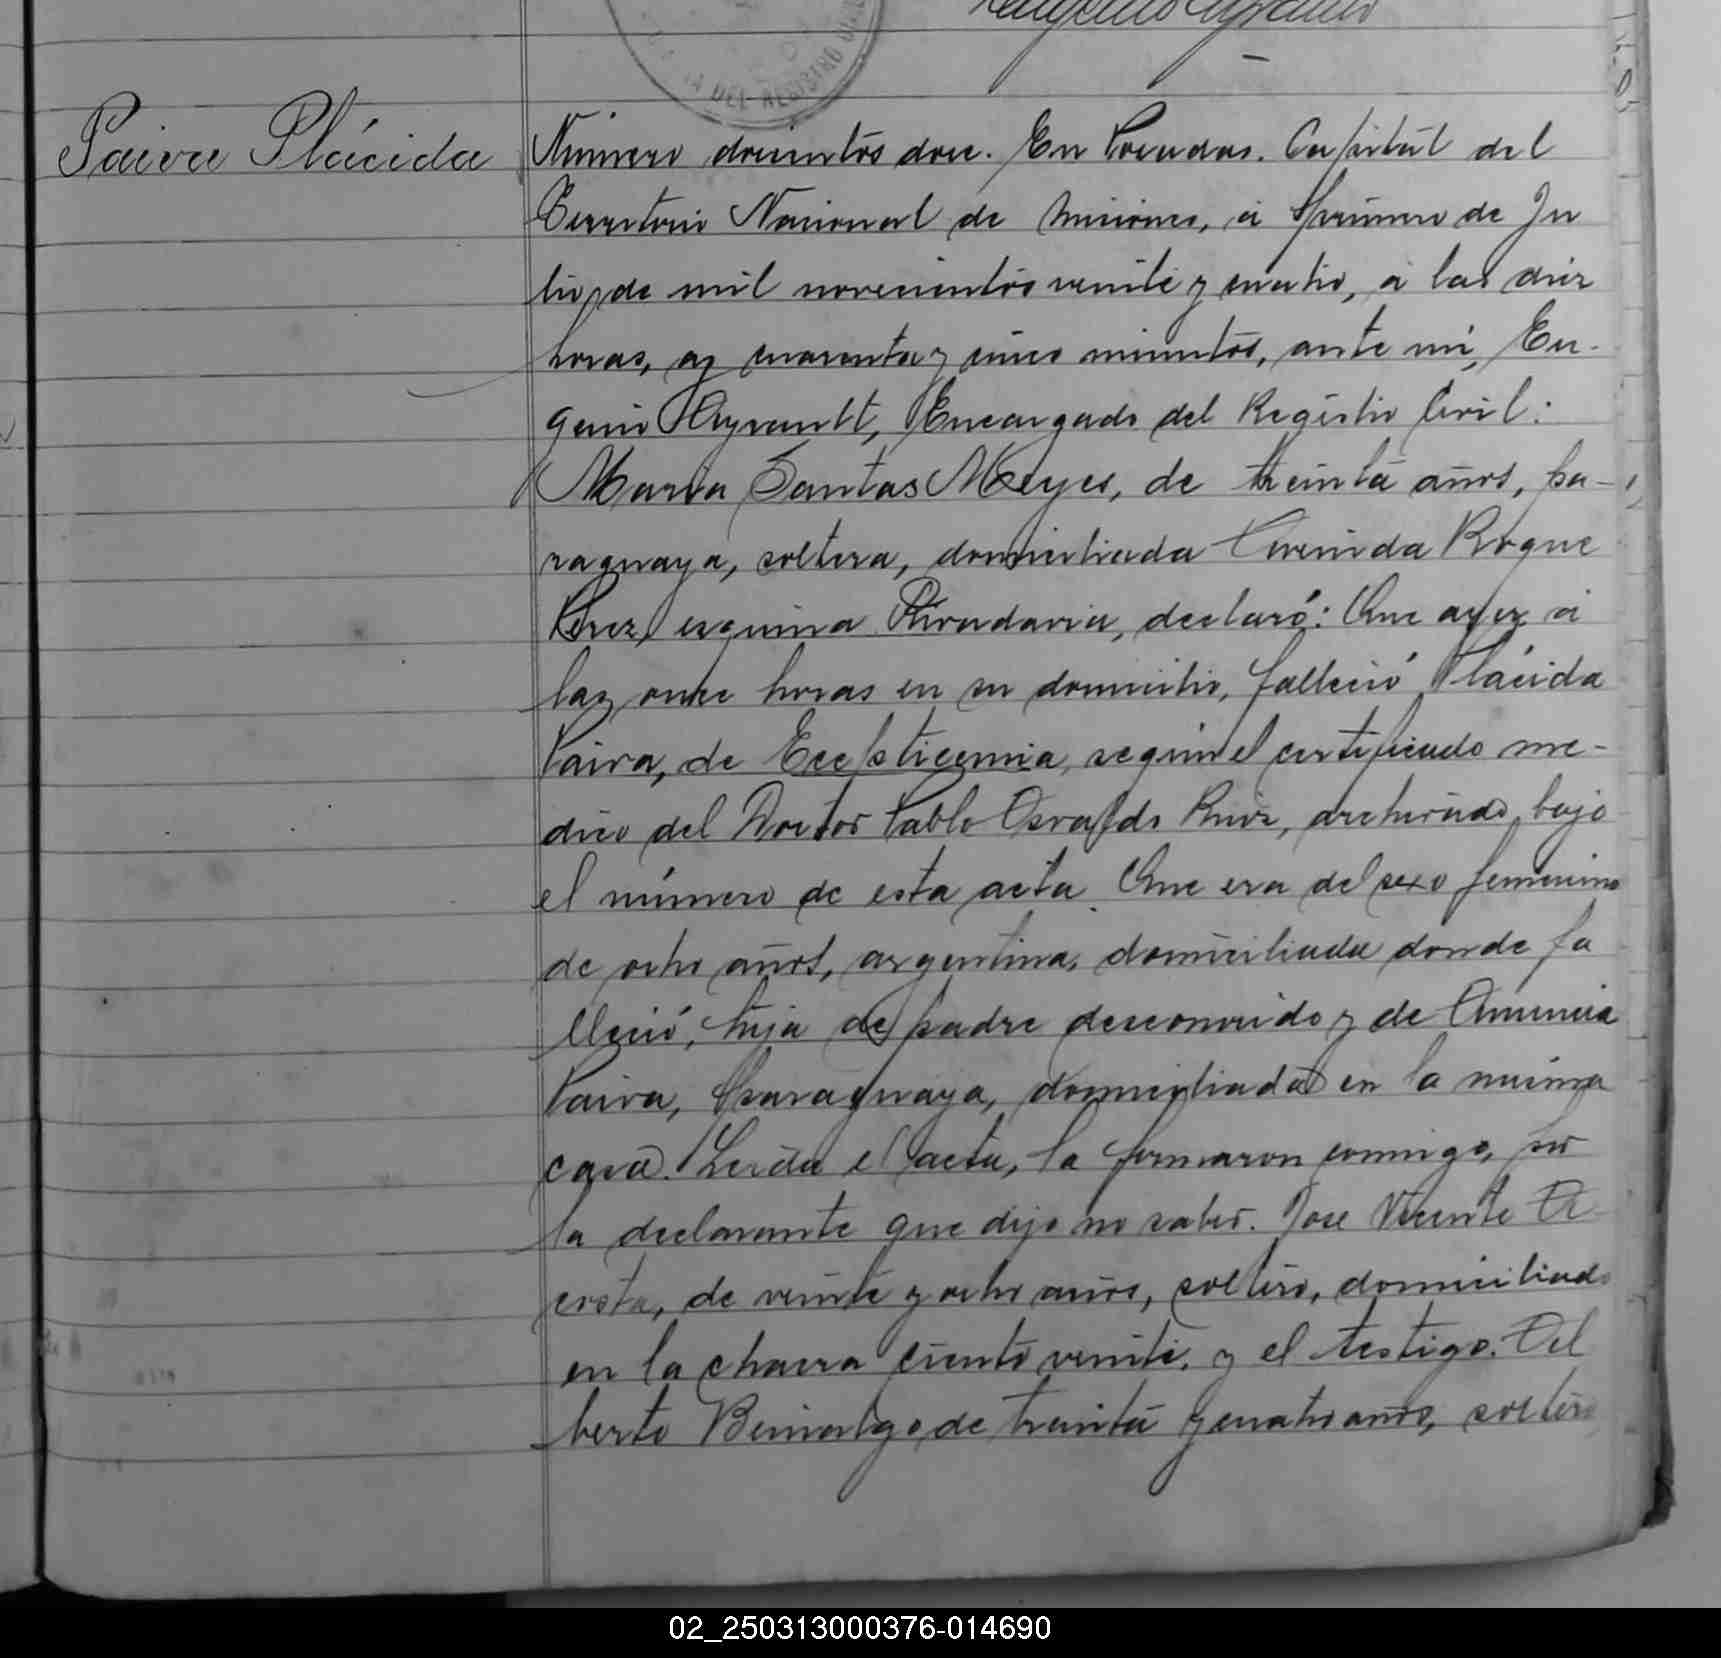 Paiva Plácida
Número doscientos doce. En Posadas. Capital del
Territorio Nacional de Misiones, á primero de Ju
lio de mil novecientos veinte y cuatro, á las diez
horas, y cuarenta y cinco minutos, ante mí, Eu-
genio Ayrault, Encargado del Registro Civil:
Maria Santas Meyes, de treinta años, pa-
raguaya, soltera, domiciliada Avenida Roque
Perez, esquina Rivadavia, declaró: Que ayer á
las once horas en su domicilio, falleció Plácida
Paiva, de según el certificado me-
dico del Doctor Pablo Osvaldo archivado bajo
el número de esta acta. Que era del sexo femenino
de ocho años, argentina, domiciliada donde fa
lleció, hija de padre desconocido y de
Paiva, Paraguaya, domiciliada en la misma
casa. Leída el acta, la firmaron conmigo, por
la declarante que dijo no saber. Jose Vicente A
costa, de veinte y ocho años, soltero, domiciliado
en la chacra ciento veinte, y el testigo.
berto de treinta y cuatro años, soltero
DEL REGISTRO
02_250313000376-014690